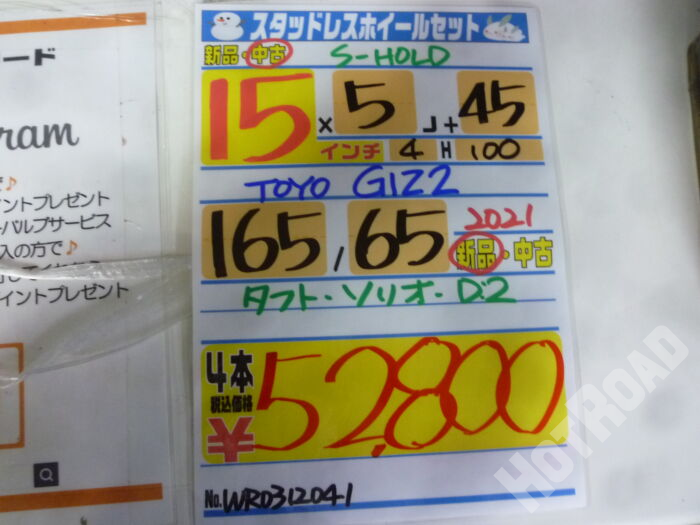 ード
ram
で♪
イントプレゼント
ーバルブサービス
入の方で♪
イントプレゼント
スタッドレスホイールセット
新品・中古 S-HOLD
15 × 5 J + 45
インチ 4 H 100
TOYO GIZ2
165 / 65 2021
新品・中古
タフト・ソリオ・D:2
4本
税込価格
¥52,800
No. WR0312041
HOTROAD